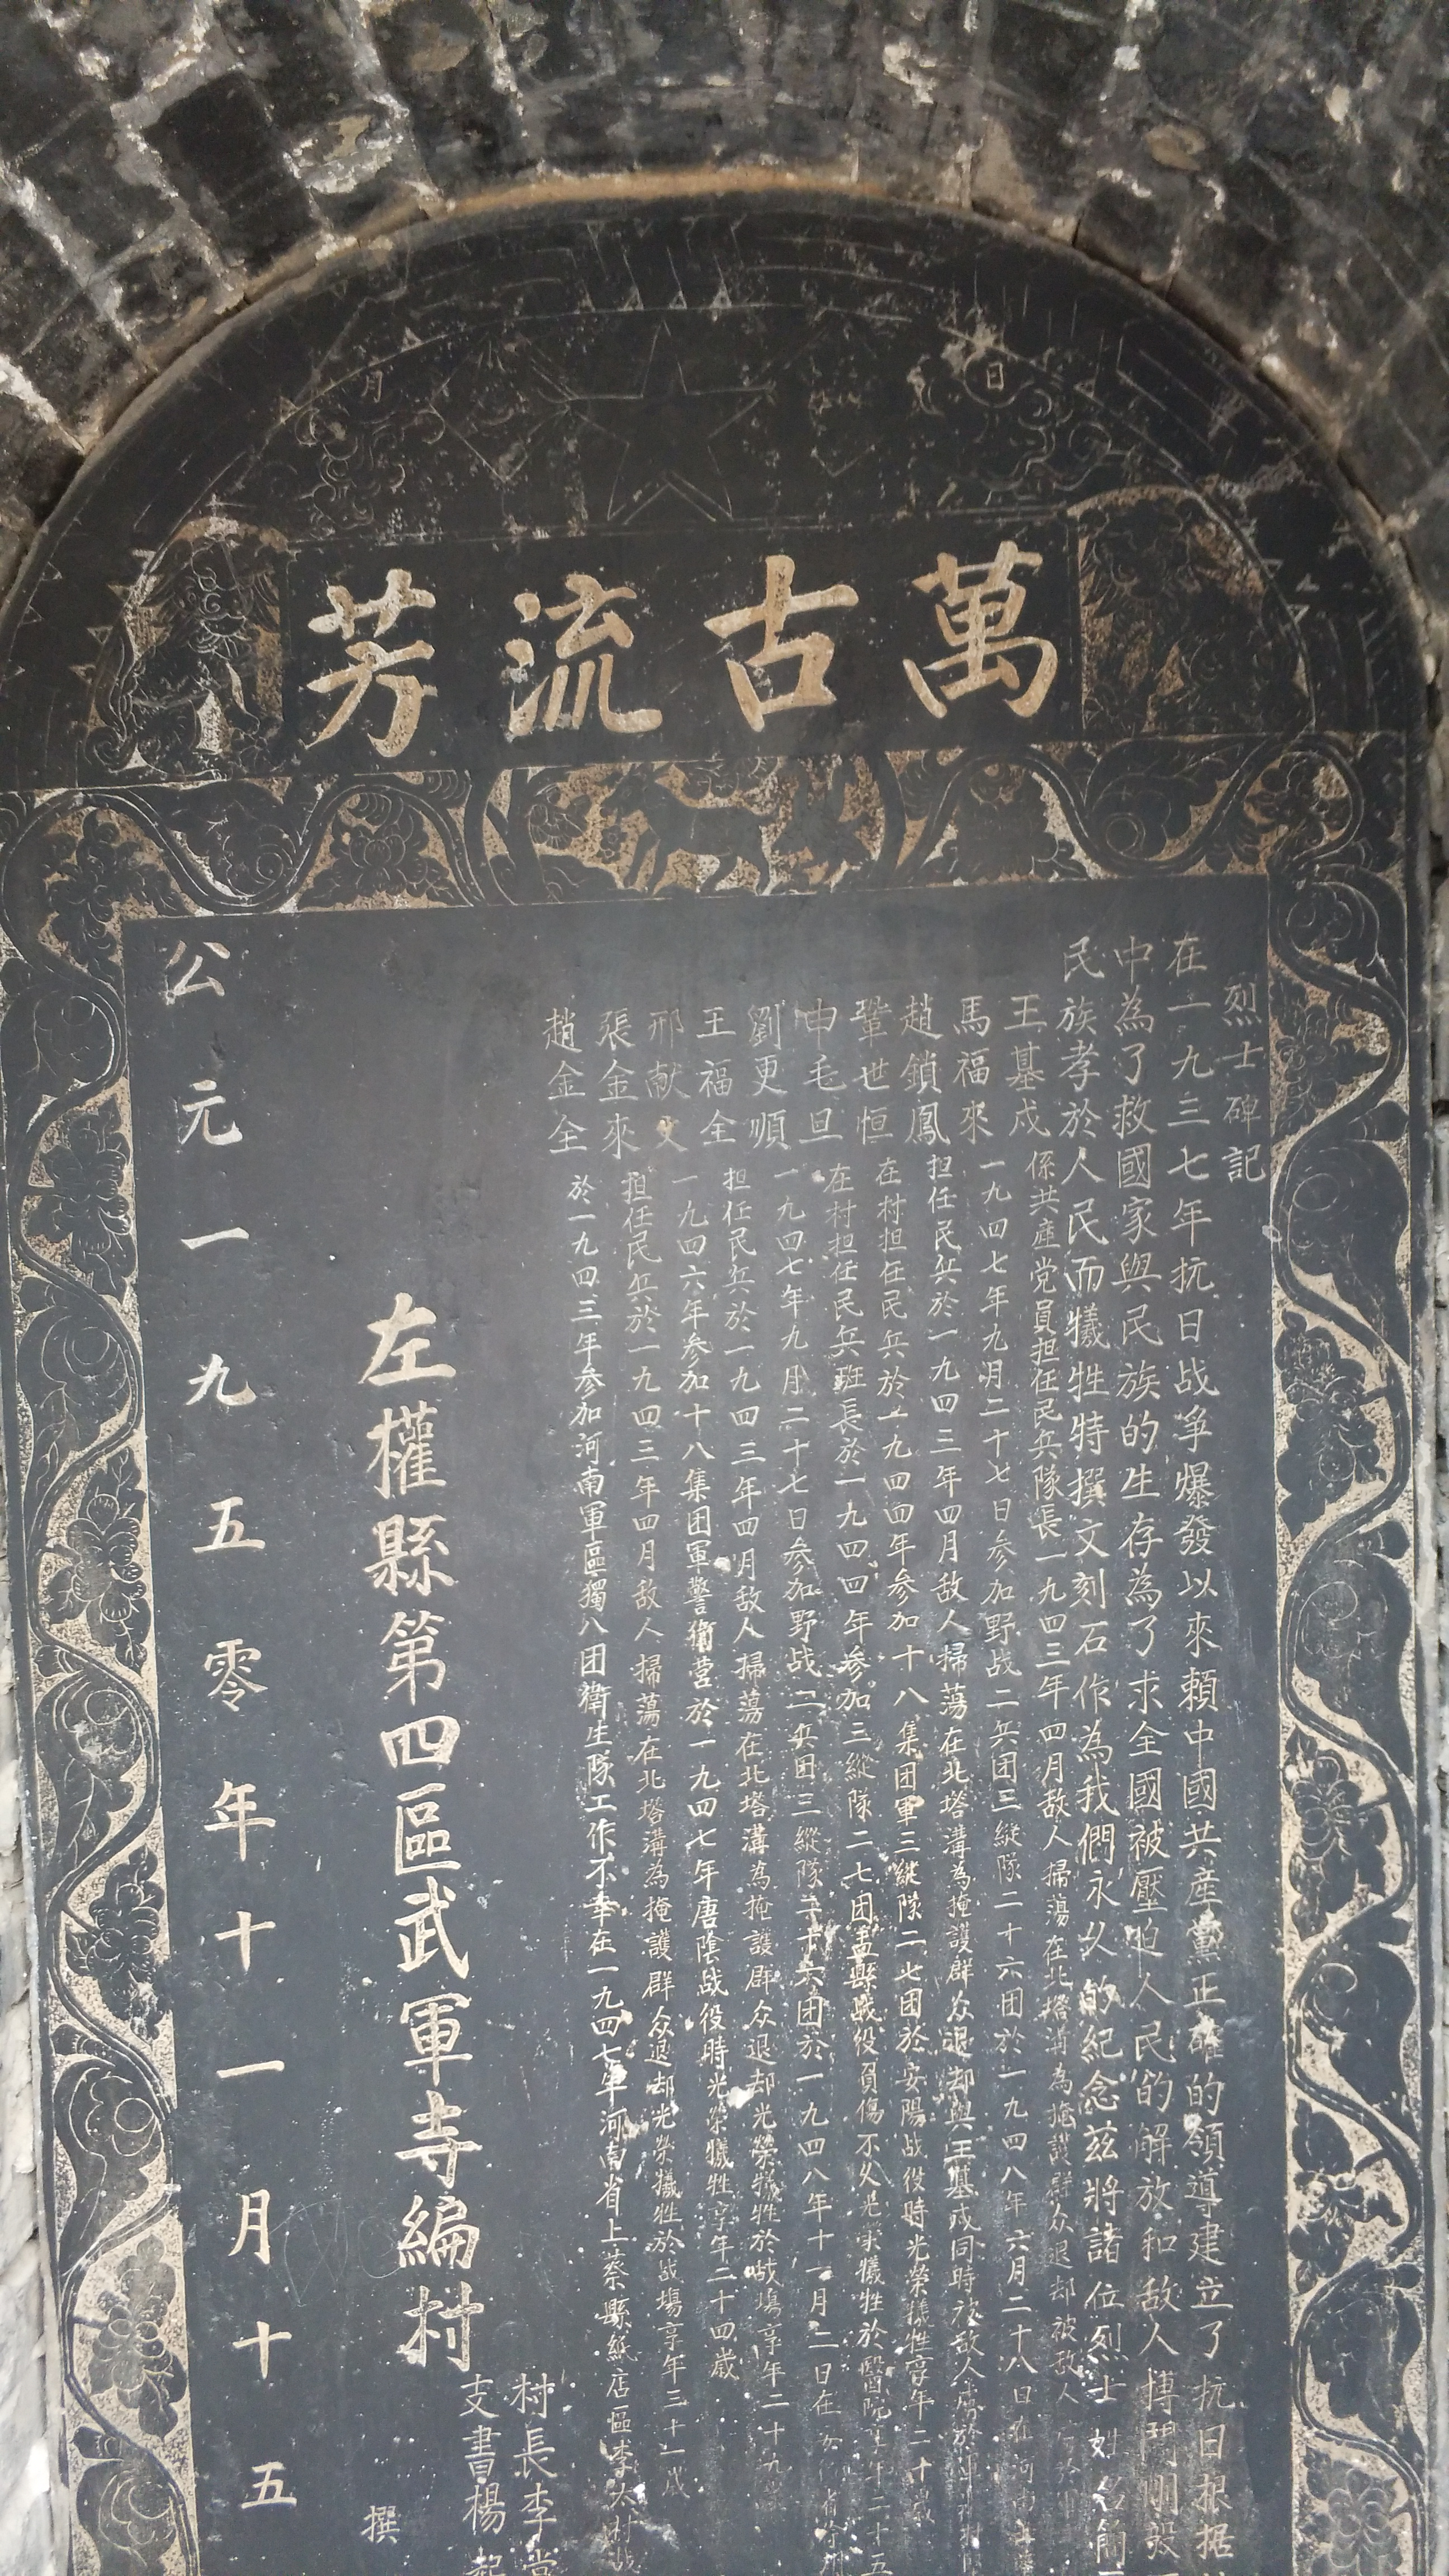 日
月
萬古流芳
烈士碑記
在一九三七年抗日战爭爆發以來賴中國共産黨正確的領導建立了抗日根据
中為了救國家與民族的生存為了求全國被壓迫人民的解放和敌人搏鬥刚毅
民族孝於人民而犧牲特撰文刻石作為我們永久的紀念茲將諸位烈士姓名簡
王基戍 係共產党員担任民兵隊長一九四三年四月敌人掃蕩在北塔溝為掩護群众退却被敌人
馬福來 一九四七年九月二十七日参加野战二兵团三縱隊二十六团於一九四八年六月二十八日在河南
趙鎖鳳 担任民兵於一九四三年四月敌人掃蕩在北塔溝為掩護群众退却與王基戍同時被敌人
鞏世恒 在村担任民兵於一九四四年参加十八集团軍三縱隊二七团於安陽战役時光榮犧牲享年二十
申毛旦 在村担任民兵班長於一九四四年参加三縱隊二七团孟縣战役負傷不久光榮犧牲於醫院
劉更順 一九四七年九月二十七日参加野战二兵团三縱隊二十六团於一九四八年十一月二日在
王福全 担任民兵於一九四三年四月敌人掃蕩在北塔溝為掩護群众退却光榮犧牲於战場享年二十九
邢献文 一九四六年参加十八集团軍警衛营於一九四七年唐陰战役時光榮犧牲享年二十四歲
張金來 担任民兵於一九四三年四月敌人掃蕩在北塔溝為掩護群众退却光榮犧牲於战場享年三十一戍
趙金全 於一九四三年参加河南軍區獨八团衛生隊工作不幸在一九四七年河南省上蔡縣紙店區李太村战
村長李
支書楊
左權縣第四區武軍寺編村
撰
公元一九五零年十一月十五